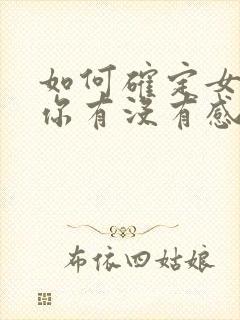 如何確定女
你有沒有感
布依四姑娘